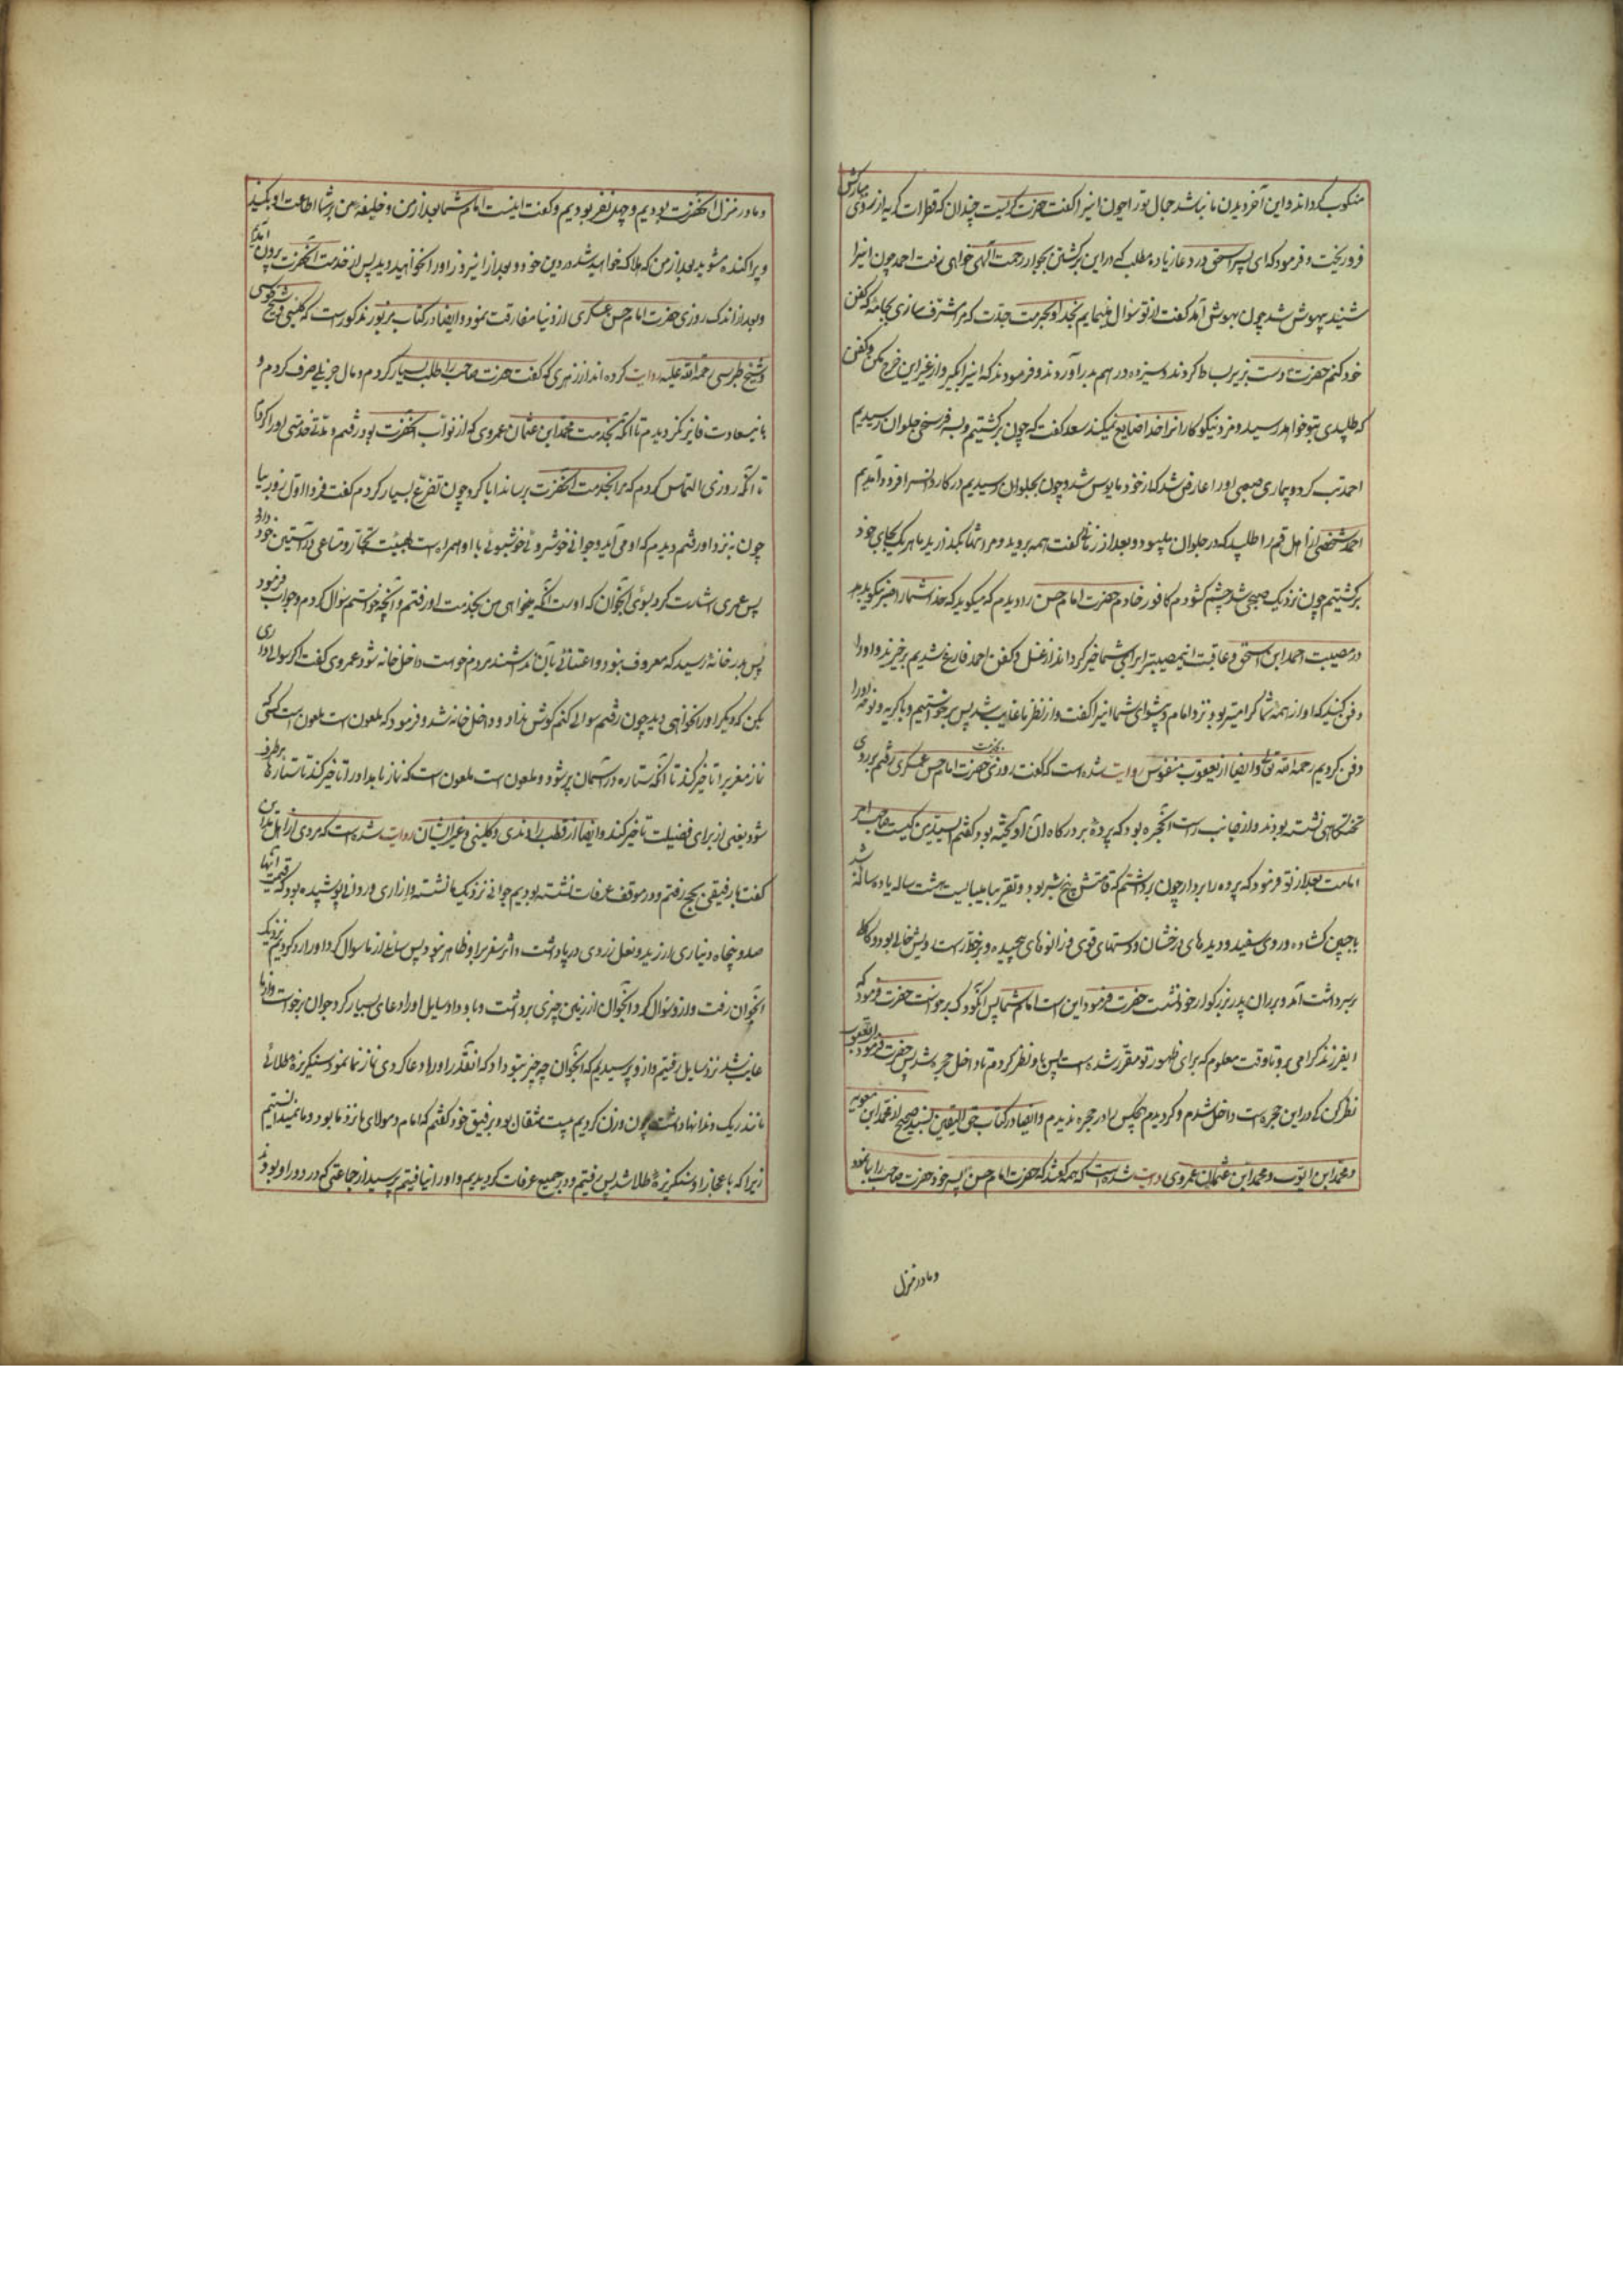 منکوب کرداند و این آخر دیدن ما نباشد جمال تورا چون اینرا گفت حضرت گریست چندان که قطرات گریه از روی مبارکش
فرو ریخت و فرمود که ای پسر اسحق در دعا زیاده مطلب که در این برگشتن بجوار رحمت الهی خواهی رفت احمد چون اینرا
شنید بیهوش شد چون بهوش آمد گفت از تو سؤال مینمایم بخدا و بحرمت جدت که مرا مشرف سازی بجامهٔ که کفن
خود کنم حضرت دست بزیر بساط کردند و سیزده درهم بدر آوردند و فرمودند که اینرا بگیر و از غیر این خرج مکن و کفن
که طلبیدی بتو خواهد رسید و مزد نیکوکاران را خدا ضایع نمیکند سعد گفت که چون برگشتیم و بسه فرسخی حلوان رسیدیم
احمد تب کرد و بیماری صعبی او را عارض شد که از خود مایوس شد و چون بحلوان رسیدیم در کاروانسرا فرود آمدیم
احمد شخصی از اهل قم را طلبید که در حلوان میبود و بعد از زمانی گفت همه بروید و مرا تنها بگذارید ما هر یک بجای خود
برگشتیم چون نزدیک صبح شد چشم گشودم کافور خادم حضرت امام حسن را دیدم که میگوید که خدا شما را خیر نیکو بدهد
در مصیبت احمد ابن اسحق و عاقبت این مصیبت را برای شما خیر گرداند از غسل و کفن احمد فارغ شدیم برخیزید و او را
دفن کنید که او از همه شما گرامیتر بود نزد امام و پیشوای شما اینرا گفت و از نظر ما غایب شد پس برخواستیم و با گریه و نوحه او را
دفن کردیم رحمه الله تعالی و ایضا از یعقوب منفوس روایت شده است که گفت روزی بخدمت حضرت امام حسن عسکری رفتم بر روی
تختگاهی نشسته بودند و از جانب راست آن حجره بود که پردهٔ بر درگاه آن آویخته بود گفتم ای سید من کیست صاحب امر
امامت بعد از تو فرمود که پرده را بردار چون برداشتم که قامتش پنج شبر بود و تقریبا میبایست هشت ساله یا ده ساله باشد
با جبین گشاده و روی سفید و دیده‌های درخشان و دستهای قوی و زانوهای پیچیده و بر خد راست رویش خالی بود و کاکلی
بر سر داشت آمد و بر ران پدر بزرگوار خود نشست حضرت فرمود این است امام شما پس آن کودک برخواست حضرت فرمود که
ای فرزند گرامی برو تا وقت معلوم که برای ظهور تو مقرر شده است پس باو نظر کردم تا داخل حجره شد پس حضرت فرمود ای یعقوب
نظر کن که در این حجره است داخل شدم و گردیدم هیچکس را در حجره ندیدم و ایضا در کتاب حق الیقین بسند صحیح از محمد ابن معویه
و محمد ابن ایوب و محمد ابن عثمان عمروی روایت شده است که همه گفتند که حضرت امام حسن پسر خود حضرت صاحب را بما نمود
و ما در منزل
و ما در منزل آنحضرت بودیم و چهل نفر بودیم و گفت اینست امام شما بعد از من و خلیفهٔ من بر شما اطاعت او بکنید
و پراکنده مشوید بعد از من که هلاک خواهید شد در دین خود و بعد از اینروز او را نخواهید دید پس از خدمت آنحضرت بیرون آمدیم
و بعد از اندک روزی حضرت امام حسن عسکری از دنیا مفارقت نمود و ایضا در کتاب مزبور مذکور است که کلینی و شیخ طوسی
و شیخ طبرسی رحمة الله علیه روایت کرده اند از زهری که گفت حضرت صاحب را طلب بسیار کردم و مال جزیلی صرف کردم و
باین سعادت فایز نگردیدم تا آنکه بخدمت محمد ابن عثمان عمروی که از نواب آنحضرت بود رفتم و مدتی خدمتی او را کردم
تا آنکه روزی التماس کردم که مرا بخدمت آنحضرت برساند ابا کرد چون تضرع بسیار کردم گفت فردا اول روز بیا
چون بنزد او رفتم دیدم که او می آید و جوانی خوشروئی خوشبوئی با او همراه است بهیئت تجار و متاعی در آستین خود دارد
پس عمری اشارت کرد بسوی آنجوان که اوست آنکه میخواهی من بخدمت او رفتم و آنچه خواستم سؤال کردم و جواب فرمود
پس بدر خانهٔ رسید که معروف نبود و اعتنائی بآن نداشتند مردم خواست داخل خانه شود عمروی گفت اگر سوالی داری
بکن که دیگر او را نخواهی دید چون رفتم سوالی کنم گوش نداد و داخل خانه شد و فرمود که ملعون است ملعون است کسی که
نماز مغرب را تاخیر کند تا آنکه ستاره در آسمان پر شود و ملعون است ملعون است که نماز بامداد را تاخیر کند تا ستاره‌ها برطرف
شود یعنی از برای فضیلت تاخیر کند و ایضا از قطب راوندی و کلینی و غیر ایشان روایت شده است که مردی از اهل مداین
گفت با رفیقی بحج رفتم و در موقف عرفات نشسته بودیم جوانی نزدیک ما نشسته و ازاری و ردائی پوشیده بود که قیمت آنها
صد و پنجاه دیناری ارزید و نعل زردی در پا داشت و اثر سفر بر او ظاهر نبود پس سائلی از ما سوال کرد او را رد کردیم نزدیک
آنجوان رفت و از او سؤال کرد آنجوان از زمین چیزی برداشت و باو داد و سایل او را دعای بسیار کرد جوان برخواست و از ما
غایب شد نزد سایل رفتیم و از او پرسیدیم که آنجوان چه چیز بتو داد که آنقدر او را دعا کردی بما نمود سنگریزهٔ طلائی
مانند ریگ دندانها داشت چون وزن کردیم بیست مثقال بود برفیق خود گفتم که امام و مولای ما نزد ما بود و ما نمیدانستیم
زیرا که باعجاز او سنگریزهٔ طلا شد پس رفتیم و در جمیع عرفات گردیدیم و او را نیافتیم پرسید از جماعتی که در دور او بودند